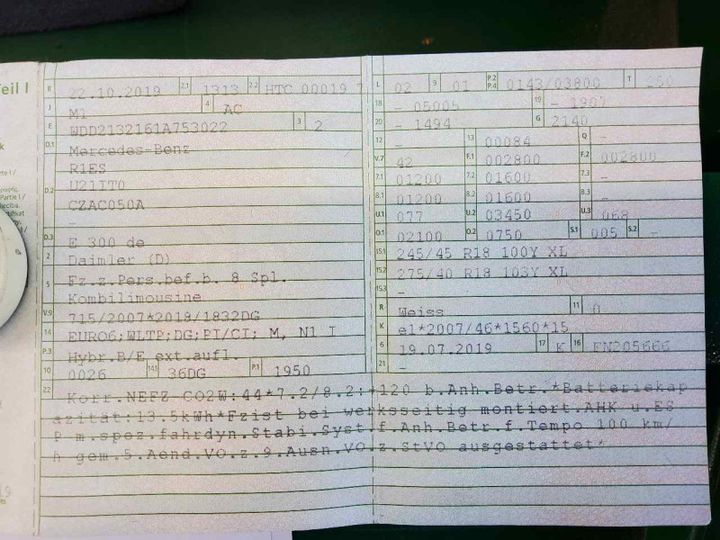 eil I
B 22.10.2019 2.1 1313 2.2 HTC 00019 7
J M1 4 AC
E WDD2132161A753022 3 2
D.1 Mercedes-Benz
D.2 R1ES
U21IT0
CZAC050A
-
D.3 E 300 de
2 Daimler (D)
5 Fz.z.Pers.bef.b. 8 Spl.
Kombilimousine
V.9 715/2007*2018/1832DG
14 EURO6;WLTP;DG;PI/CI; M, N1 I
P.3 Hybr.B/E ext.aufl.
10 0026 14.1 36DG P.1 1950
L 02 9 01 P.2 P.4 0143/03800 T 250
18 - 05005 19 - 1907
20 - 1494 G 2140
12 - 13 00084 Q -
V.7 42 F.1 002800 F.2 002800
7.1 01200 7.2 01600 7.3 -
8.1 01200 8.2 01600 8.3 -
U.1 077 U.2 03450 U.3 068
O.1 02100 O.2 0750 S.1 005 S.2 -
15.1 245/45 R18 100Y XL
15.2 275/40 R18 103Y XL
15.3 -
R Weiss 11 0
K e1*2007/46*1560*15
6 19.07.2019 17 K 16 FN205666
21 -
22 Korr.NEFZ-CO2W:44*7.2/8.2:+120 b.Anh.Betr.*Batteriekap
azität:13.5kWh*Fzist bei werksseitig montiert.AHK u.ES
P m.spez.fahrdyn.Stabi.Syst.f.Anh.Betr.f.Tempo 100 km/
h gem.5.Aend.VO.z.9.Ausn.VO.z.StVO ausgestattet*